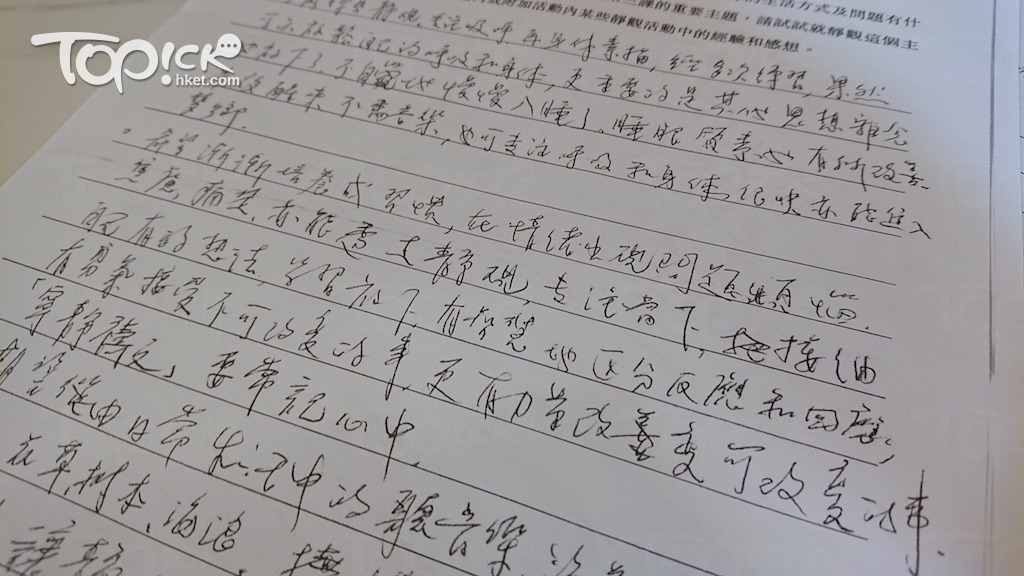 TOPick
hket.com
的生活方式及問題有什
三課的重要主題,請試試就靜觀這個主
附加活動內某些靜觀活動中的經驗和感想。
靜觀 專注呼吸 再身體素描,經多次練習,果然
可以放鬆 的呼吸和身體,更重要的是其他思想雜念
下了,不自覺地慢慢入睡了。睡眠質素也有所改善。
後 來不需音樂,也可專注呼吸和身體,很快亦能進入
夢鄉。
。希望漸漸培養成習慣,在情緒出現問題、煩惱、
焦慮、痛楚,亦能透過靜觀,專注當下,接納
既有的想法,學習放下,有智慧地區分反應和回應,
有勇氣接受不可改變的事,更有力量改善變可改變的事。
「寧靜禱文」要常記心中。
期望從由日常生活中的聽音樂
在草、樹木、海浪
讓